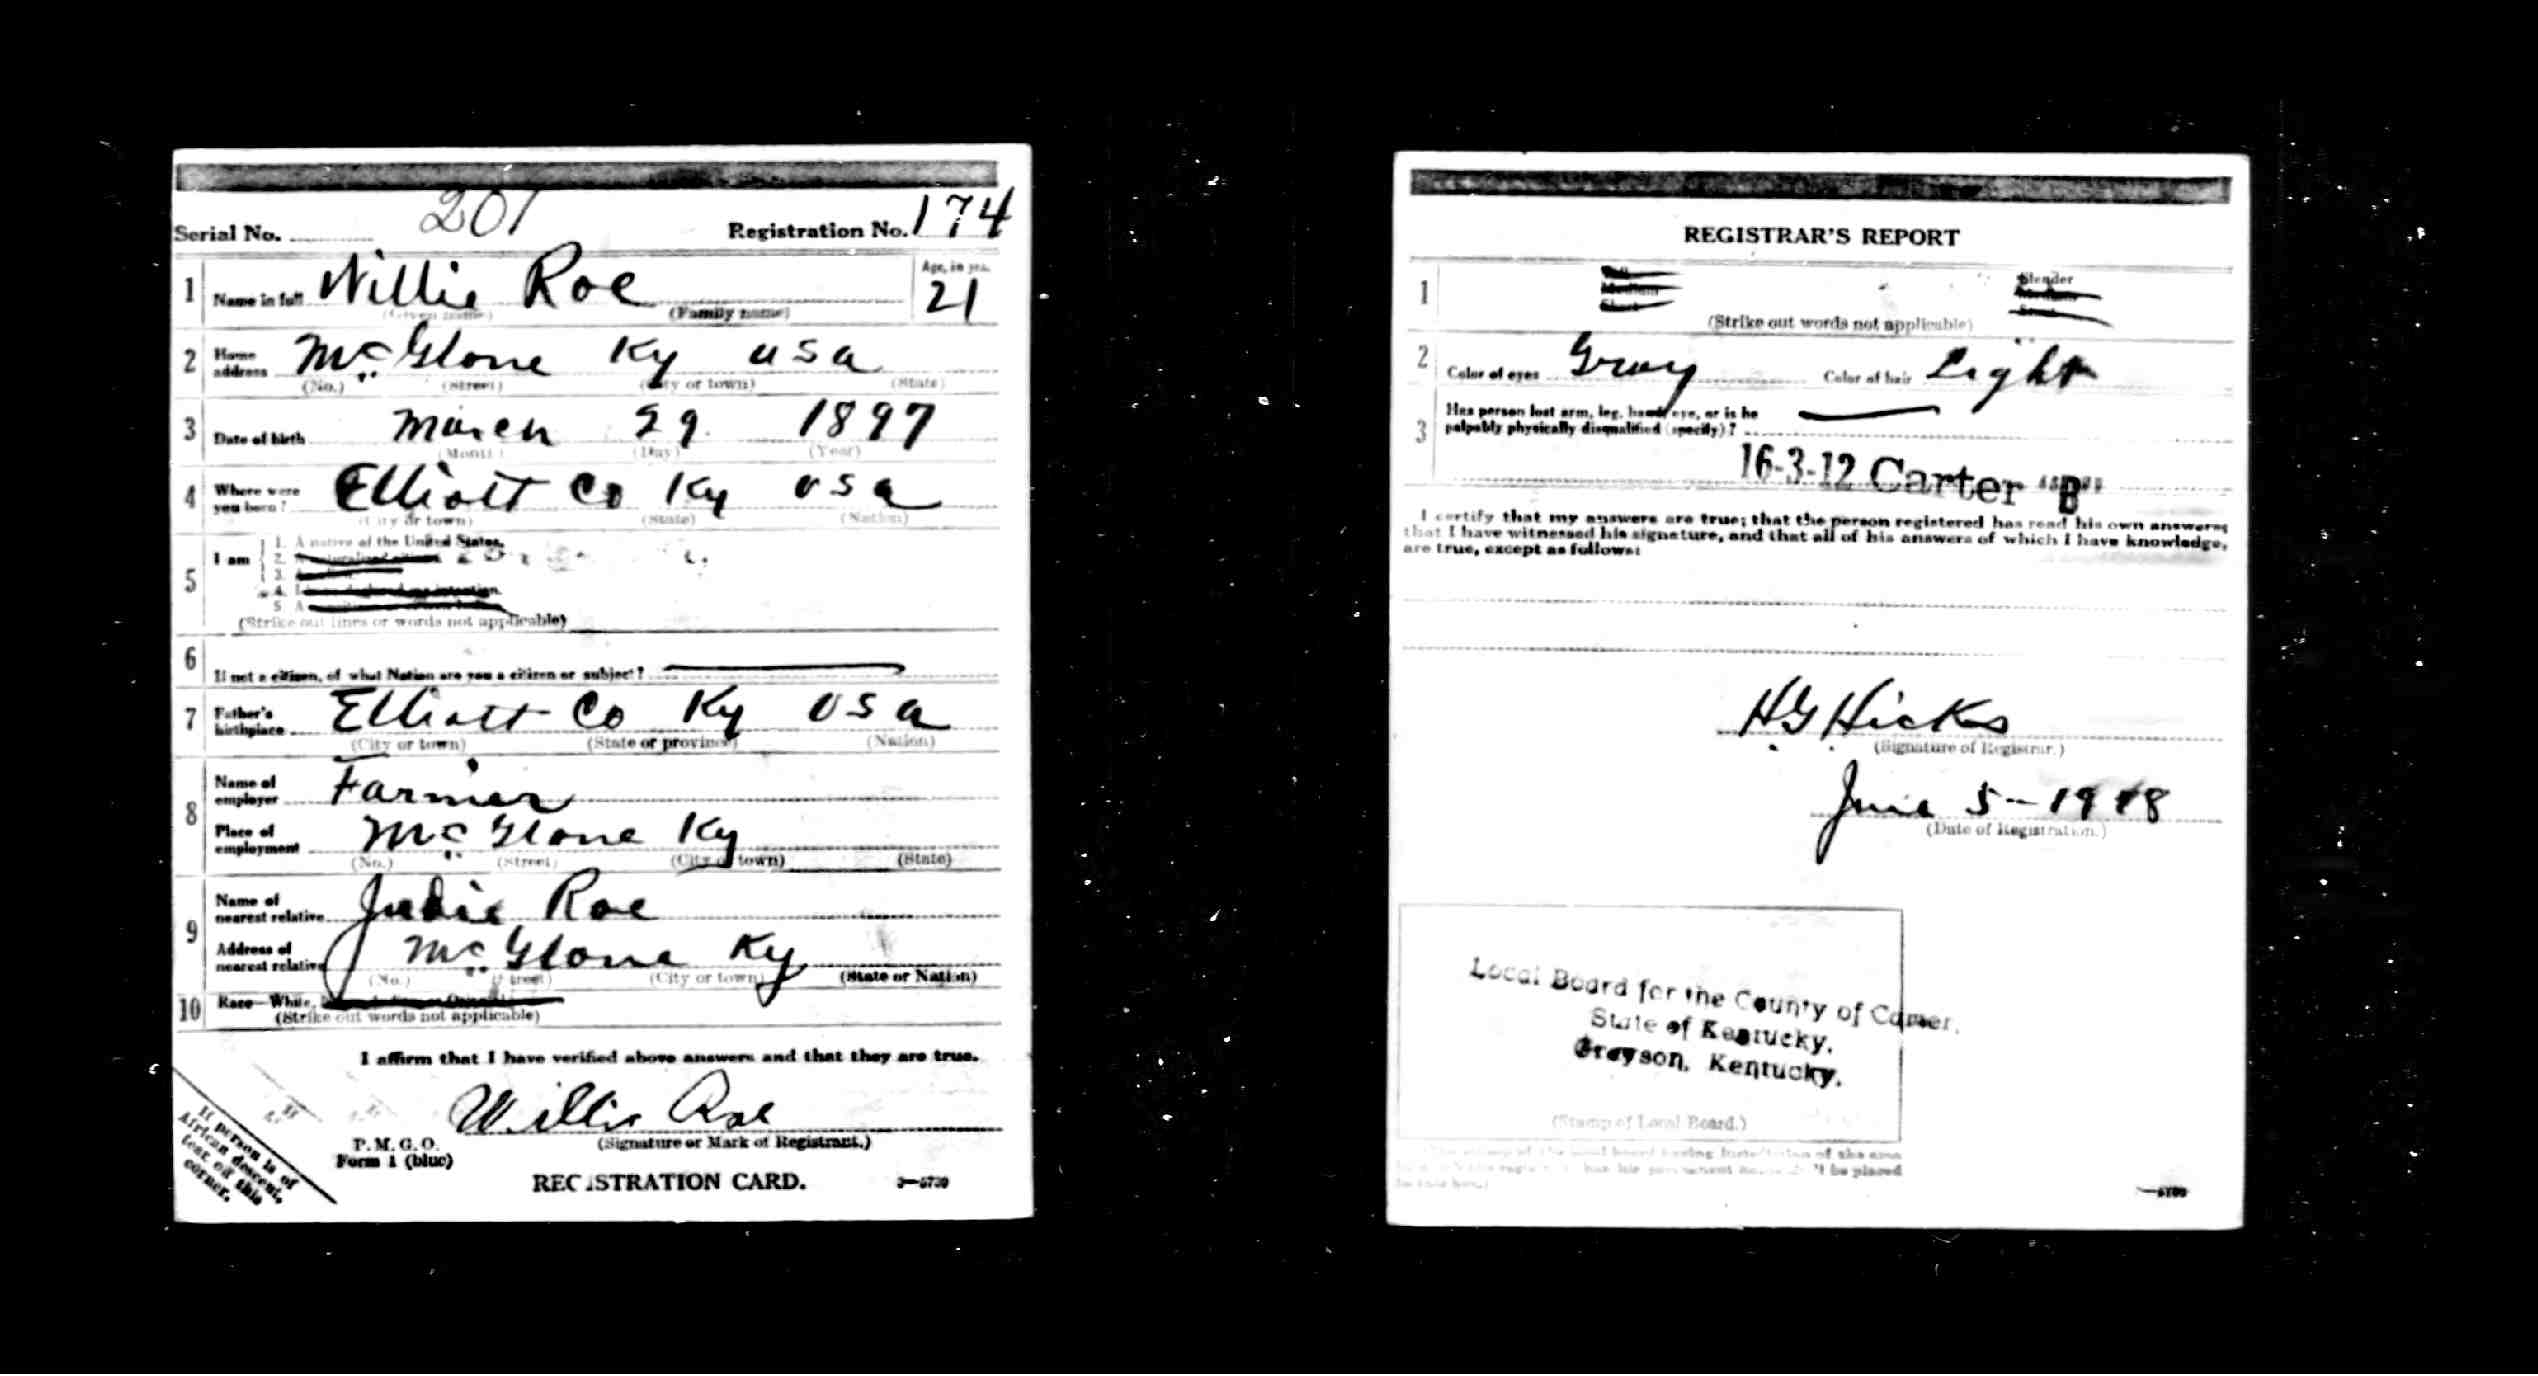 Serial No. 201 Registration No. 174
1 Name in full Willie Roe Age, in yrs. 21
(Given name) (Family name)
2 Home address McGlone Ky USA
(No.) (Street) (City or town) (State)
3 Date of birth March 29 1897
(Month) (Day) (Year)
4 Where were you born? Elliott Co Ky USA
(City or town) (State) (Nation)
5 I am
1. A native of the United States.
2.
3.
4.
5. A
(Strike out lines or words not applicable)
6 If not a citizen, of what Nation are you a citizen or subject?
7 Father's birthplace Elliott Co Ky USA
(City or town) (State or province) (Nation)
8 Name of employer Farmer
Place of employment McGlone Ky
(No.) (Street) (City or town) (State)
9 Name of nearest relative Roe
Address of nearest relative McGlone Ky
(No.) (Street) (City or town) (State or Nation)
10 Race—White,
(Strike out words not applicable)
I affirm that I have verified above answers and that they are true.
Willie Roe
P. M. G. O. (Signature or Mark of Registrant.)
Form 1 (blue)
REGISTRATION CARD.
If person is of
African descent,
tear off this
corner.
REGISTRAR'S REPORT
1 Medium Slender
Short
(Strike out words not applicable)
2 Color of eyes Gray Color of hair Light
3 Has person lost arm, leg, hand, eye, or is he
palpably physically disqualified (specify)?
16-3-12 Carter "B"
I certify that my answers are true; that the person registered has read his own answers;
that I have witnessed his signature, and that all of his answers of which I have knowledge,
are true, except as follows:
HG Hicks
(Signature of Registrar.)
June 5-1918
(Date of Registration.)
Local Board for the County of Carter,
State of Kentucky,
Grayson, Kentucky.
(Stamp of Local Board.)